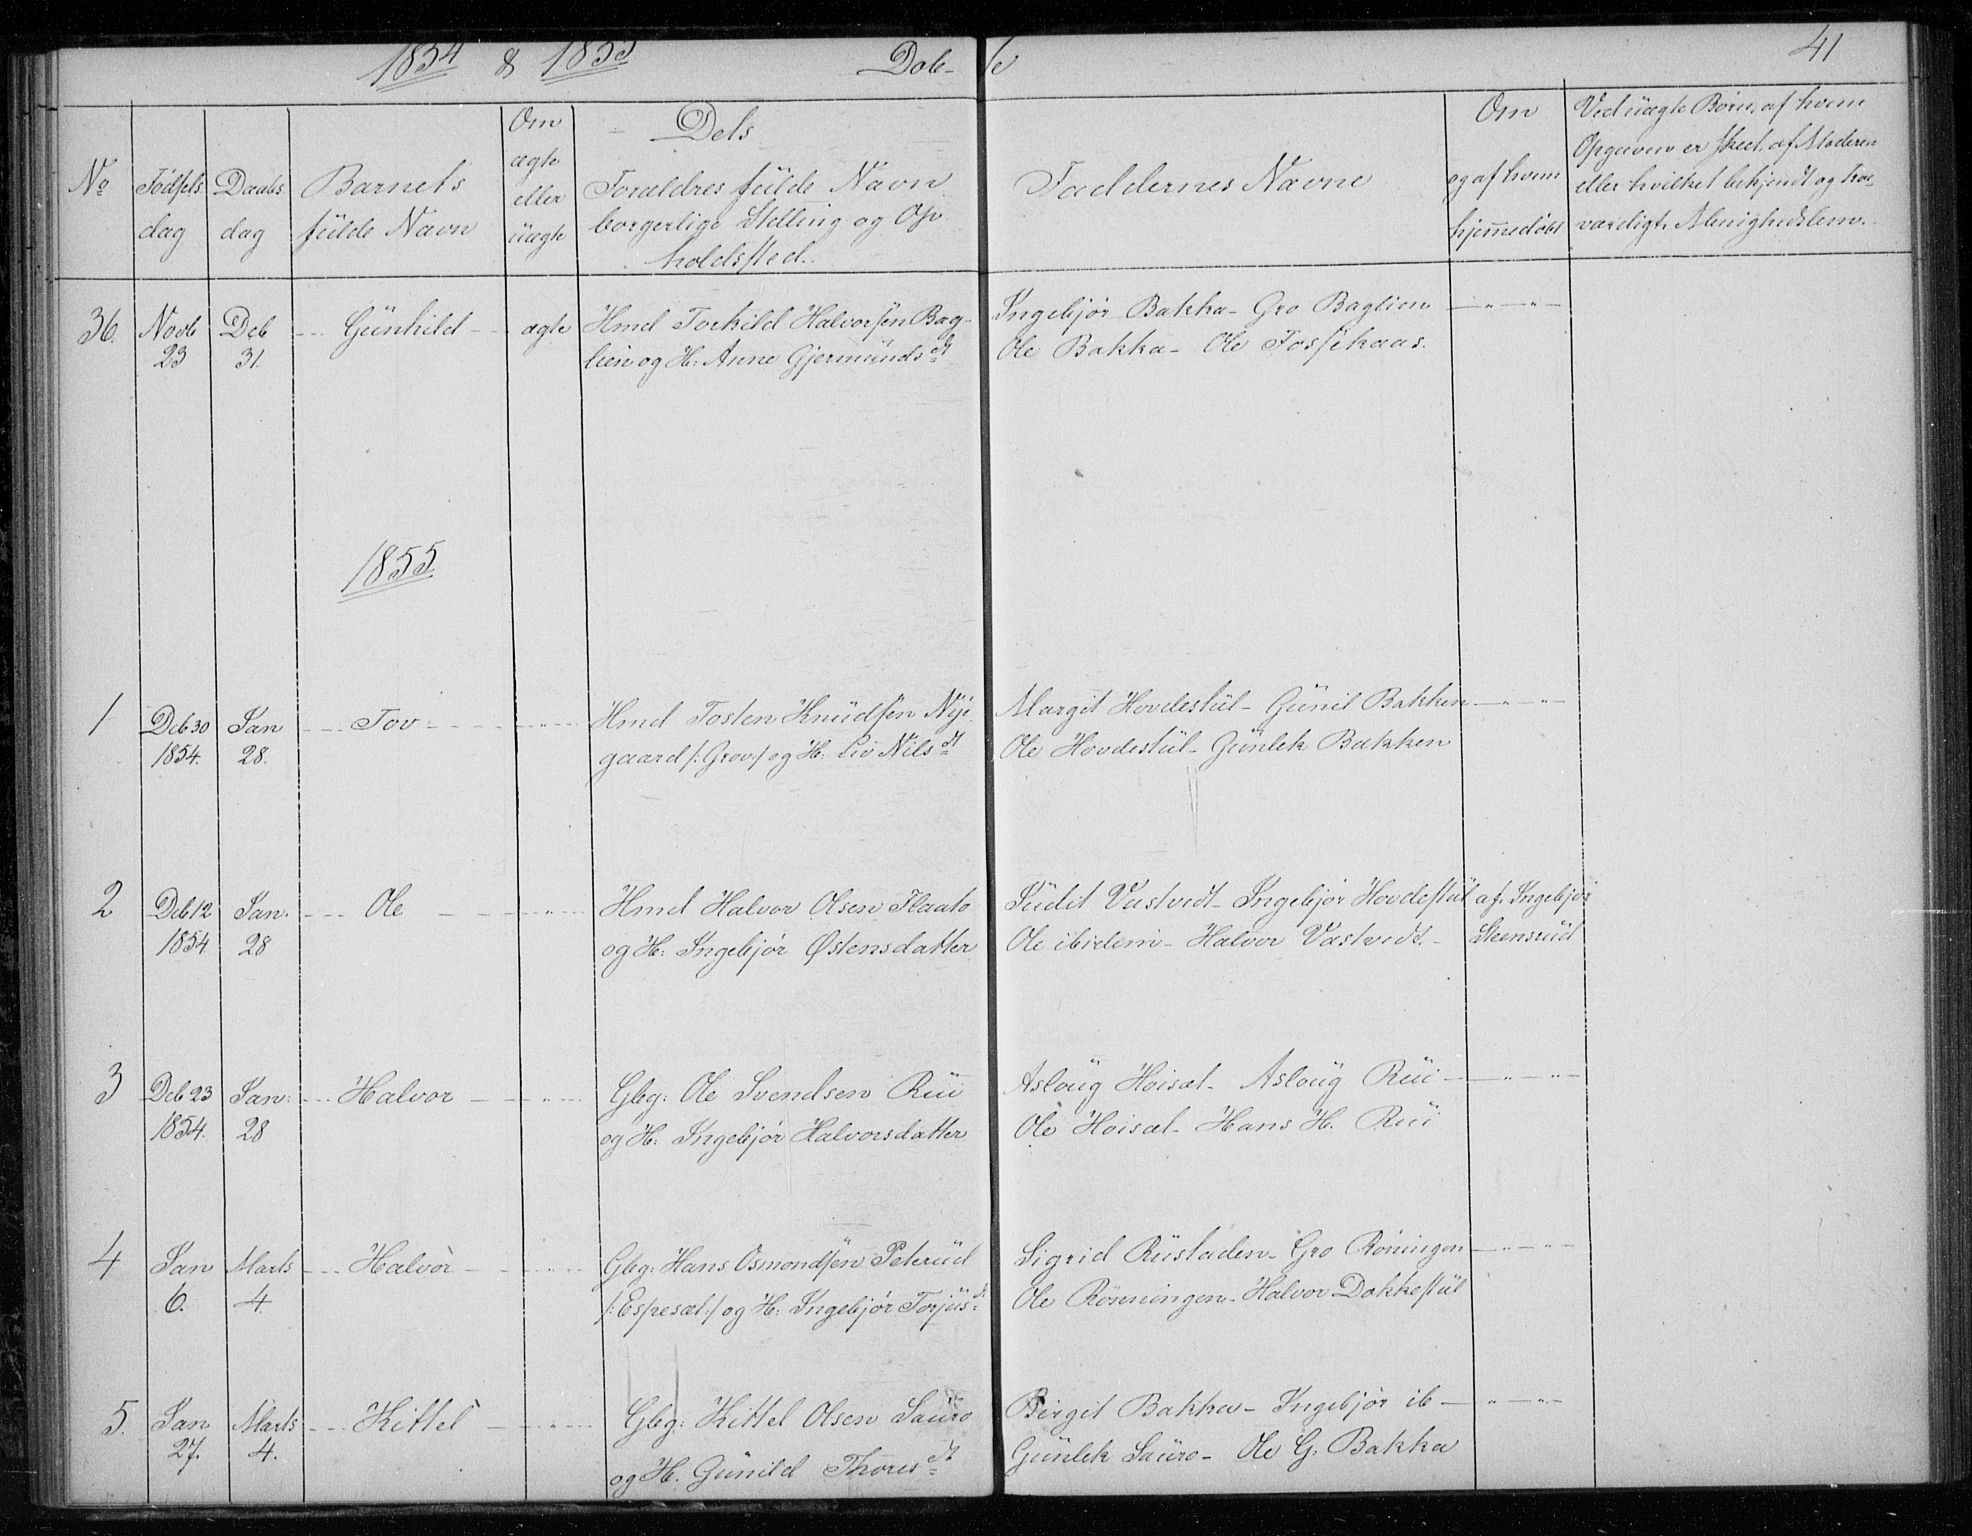 1854 & 1855 Døb- te 41
No
Fødsels dag
Daabs dag
Barnets fulde Navn
Om ægte eller uægte
Dels
Forældres fulde Navn
borgerlige Stelling og Op-
holdssted.
Faddernes Navne
Om
og af hvem
hjemmedøbt
Ved uægte Børn, af hvem
Opgaven er skeet, af Moderen
eller hvilket bekjendt og tro-
værdigt Menighedslem.
36. Novb Deb --- Gunhild --- ægte Hmd Torkild Halvorsen Bag- Ingebjør Bakka- Gro Baglien —"—"—
23 31. lien og H: Anne Gjermunds dt Ole Bakka- Ole Fossekaas.
1855
1 Deb 30 Jan --- Tov --- " --- Hmd Tosten Knudsen Nye- Margit Hovdestul- Gunil Bakken —"—"—
1854. 28. gaard /: Grov :/ og H: Liv Nils dt Ole Hovdestul- Gunlek Bakken
2 Deb 12 Jan. --- Ole --- " --- Hmd Halvor Olsen Flaato Sudit Vastvedt- Ingebjør Hovdestul af Ingebjør
1854 28 og H: Ingebjør Østensdatter Ole ibidem- Halvor Vastvedt.- Steensrud
3 Deb 23 Jan: --- Halvor --- " --- Gbg: Ole Svendsen Rui Asloug Hoisæt- Asloug Rui —"—"—
1854. 28 og H: Ingebjør Halvorsdatter Ole Hoisæt- Hans H. Rui
4 Jan Marts --- Halvor --- " --- Gbg: Hans Osmondsen Peterud Sigrid Rustaden- Gro Rønningen —"—"—
6. 4. /: Espesæt :/ og H: Ingebjør Torjus d: Ole Rønningen- Halvor Dokkestul
5. Jan Marts --- Kittel --- " --- Gbg: Kittel Olsen Sauro Birgit Bakka- Ingebjør ib —"—"—
27. 4. og H. Gunild Thores dt Gunlek Sauro- Ole G. Bakka